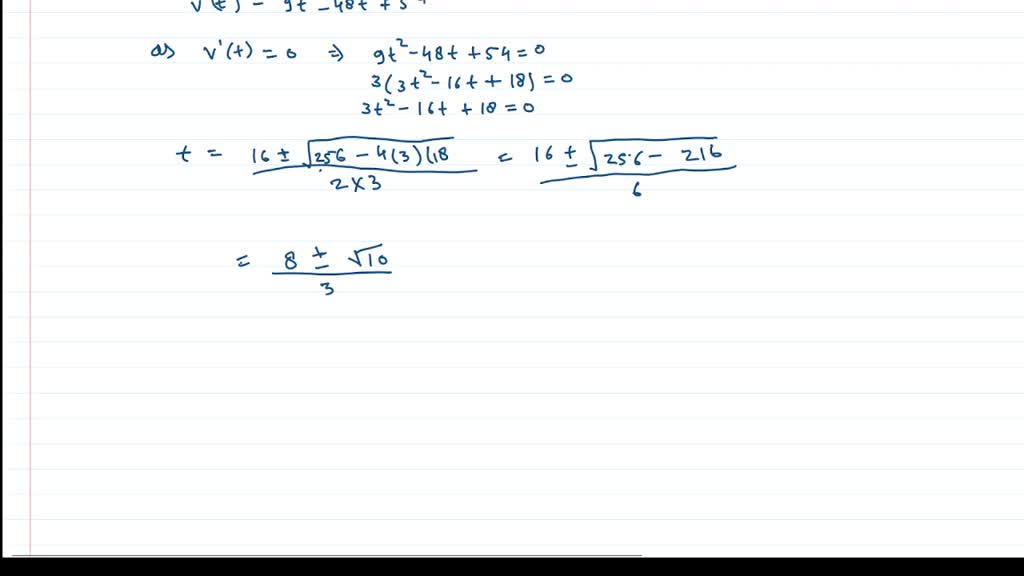 v'(t) = 9t² - 48t + 54
as v'(t) = 0 ⇒ 9t² - 48t + 54 = 0
3(3t² - 16t + 18) = 0
3t² - 16t + 18 = 0
t = 16 ± √256 - 4(3)(18 / 2×3 = 16 ± √256 - 216 / 6
= 8 ± √10 / 3